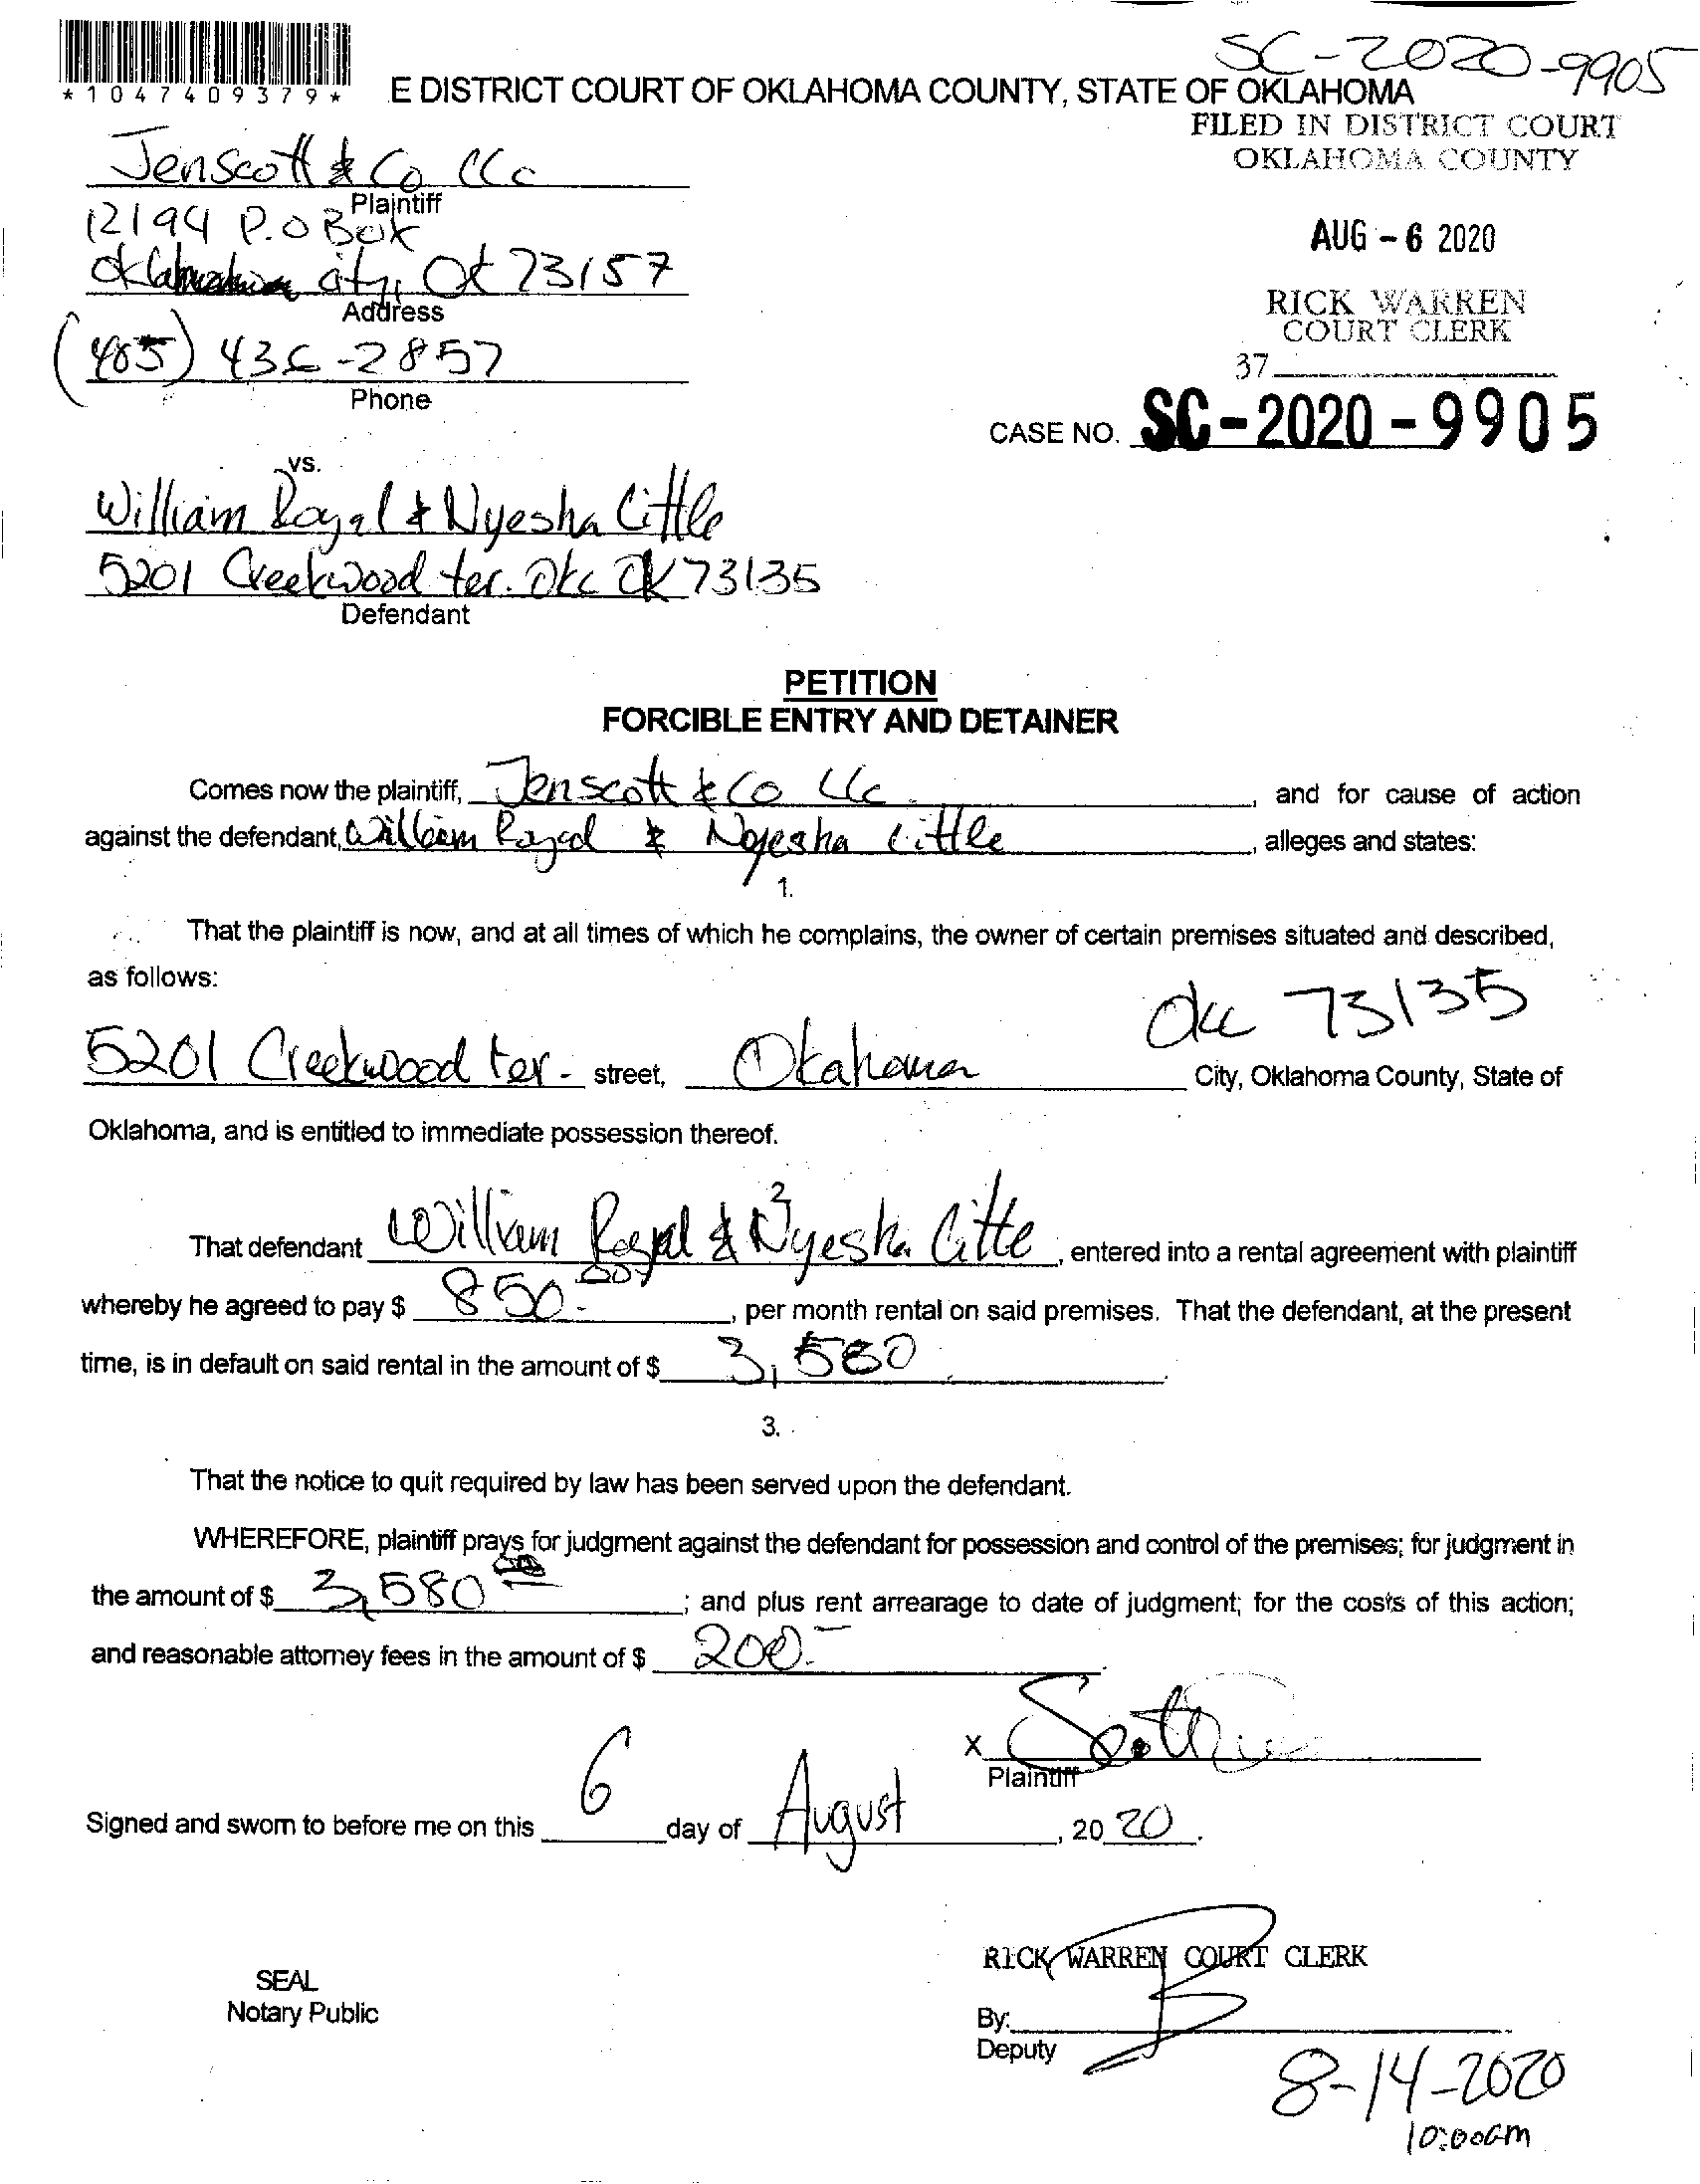 SC-2020-9905
*1047409379*
E DISTRICT COURT OF OKLAHOMA COUNTY, STATE OF OKLAHOMA
FILED IN DISTRICT COURT
OKLAHOMA COUNTY
Jenscott & Co LLC
Plaintiff
12194 P.O Box
Oklahoma city, Ok 73157
Address
AUG - 6 2020
RICK WARREN
COURT CLERK
37
(405) 436-2857
Phone
CASE NO. SC-2020-9905
vs.
William Royal & Nyesha Little
5201 Creekwood ter. Okc OK 73135
Defendant
PETITION
FORCIBLE ENTRY AND DETAINER
Comes now the plaintiff, Jenscott & Co LLC, and for cause of action
against the defendant, William Royal & Nyesha Little, alleges and states:
1.
That the plaintiff is now, and at all times of which he complains, the owner of certain premises situated and described,
as follows:
Okc 73135
5201 Creekwood ter. street, Okahoma City, Oklahoma County, State of
Oklahoma, and is entitled to immediate possession thereof.
2
That defendant William Royal & Nyesha Little, entered into a rental agreement with plaintiff
whereby he agreed to pay $ 850.-, per month rental on said premises. That the defendant, at the present
time, is in default on said rental in the amount of $ 3,580.
3.
That the notice to quit required by law has been served upon the defendant.
WHEREFORE, plaintiff prays for judgment against the defendant for possession and control of the premises; for judgment in
the amount of $ 3,580; and plus rent arrearage to date of judgment; for the costs of this action;
and reasonable attorney fees in the amount of $ 200.-
X
Plaintiff
Signed and sworn to before me on this 6 day of August, 2020.
RICK WARREN COURT CLERK
SEAL
Notary Public
By:
Deputy
8-14-2020
10:00am